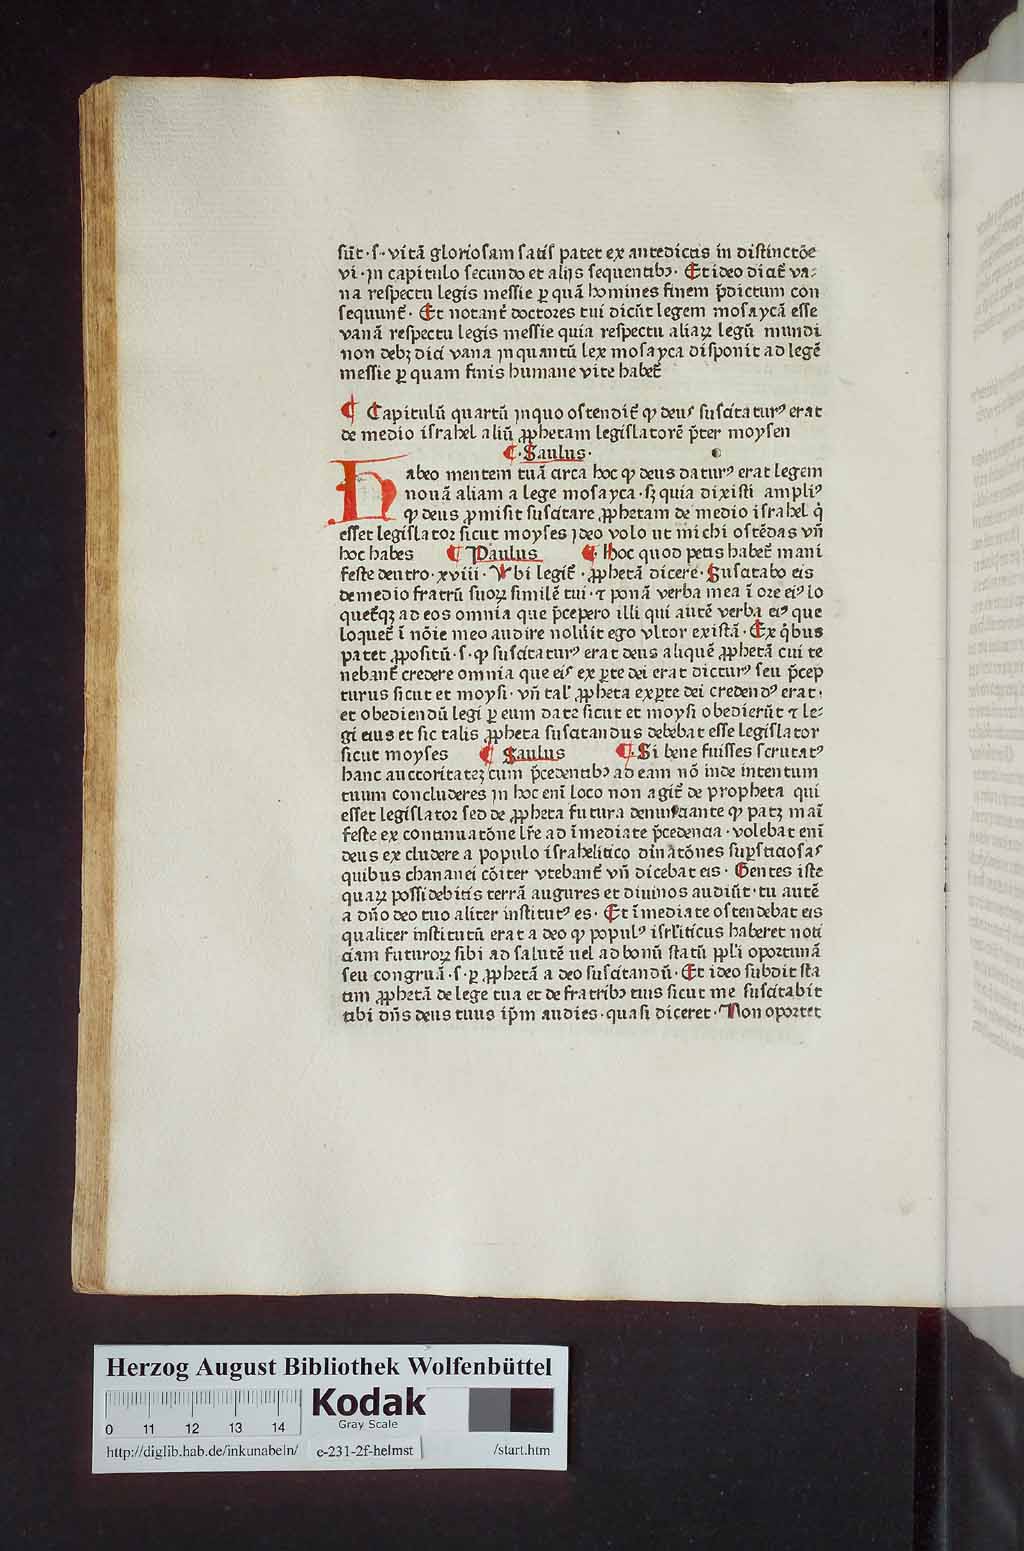 sūt · s · vitā gloriosam satis patet ex antedictis in distinctōe
vi · jn capitulo secundo et alijs sequentibꝫ · Et ideo dicit᷑ va⸗
na respectu legis messie ꝑ quā homines finem p̄dictum con
sequunt᷑ · Et notant᷑ doctores tui dicūt legem mosaycā esse
vanā respectu legis messie quia respectu aliaꝝ legū mundi
non debꝫ dici vana jnquantū lex mosayca disponit ad legē
messie ꝑ quam finis humane vite habet᷑
¶ Capitulū quartū jnquo ostendit᷑ ꝙ deus suscitaturꝰ erat
de medio israhel aliū ꝓphetam legislatorē p̄ter moysen
¶ · Saulus ·
Habeo mentem tuā circa hoc ꝙ deus daturꝰ erat legem
nouā aliam a lege mosayca · sꝫ quia dixisti ampliꝰ
ꝙ deus ꝓmisit suscitare ꝓphetam de medio israhel q̇
esset legislator sicut moyses jdeo volo ut michi ostēdas vn̄
hoc habes ¶ Paulus ¶ · Hoc quod petis habet᷑ mani
feste deutro · xviii · Vbi legit᷑ · ꝓphetā dicere · Suscitabo eis
de medio fratrū suoꝝ similē tui · ⁊ ponā verba mea ī ore eiꝰ lo
quet᷑qꝫ ad eos omnia que p̄cepero illi qui autē verba eiꝰ que
loquet᷑ ī nōie meo audire noluīt ego vltor existā · Ex q̇bus
patet ꝓpositū · s · ꝙ suscitaturꝰ erat deus aliquē ꝓphetā cui te
nebant᷑ credere omnia que eis ex ꝑte dei erat dicturꝰ seu p̄cep
turus sicut et moysi · vn̄ tal' ꝓpheta exꝑte dei credendꝰ erat ·
et obediendū legi ꝑ eum date sicut et moysi obedierūt ⁊ le⸗
gi eius et sic talis ꝓpheta suscitandus debebat esse legislator
sicut moyses ¶ Saulus ¶ · Si bene fuisses scrutatꝰ
hanc auctoritateꝫ cum p̄cedentibꝫ ad eam nō inde intentum
tuum concluderes jn hoc enī loco non agit᷑ de propheta qui
esset legislator sed de ꝓpheta futura denunciante ꝙ patꝫ mai
feste ex continuatōne lr̄e ad īmediate p̄cedencia · volebat enī
deus ex cludere a populo israhelitico diuīatōnes suꝑsticiosas
quibus chananei cōiter vtebant᷑ vn̄ dicebat eis · Gentes iste
quaꝝ possidebitis terrā augures et diuinos audiūt · tu autē
a dn̄o deo tuo aliter institutꝰ es · Et īmediate ostendebat eis
qualiter institutū erat a deo ꝙ populꝰ isrl'iticus haberet noti
ciam futuroꝝ sibi ad salutē uel ad bonū statū ppl'i oportunā
seu congruā · s · ꝑ ꝓphetā a deo suscitandū · Et ideo subdit sta
tim ꝓphetā de lege tua et de fratribꝫ tuis sicut me suscitabit
tibi dn̄s deus tuus ip̄m audies · quasi diceret · Non oportet
Herzog August Bibliothek Wolfenbüttel
0 11 12 13 14
Kodak
Gray Scale
http://diglib.hab.de/inkunabeln/ e-231-2f-helmst /start.htm